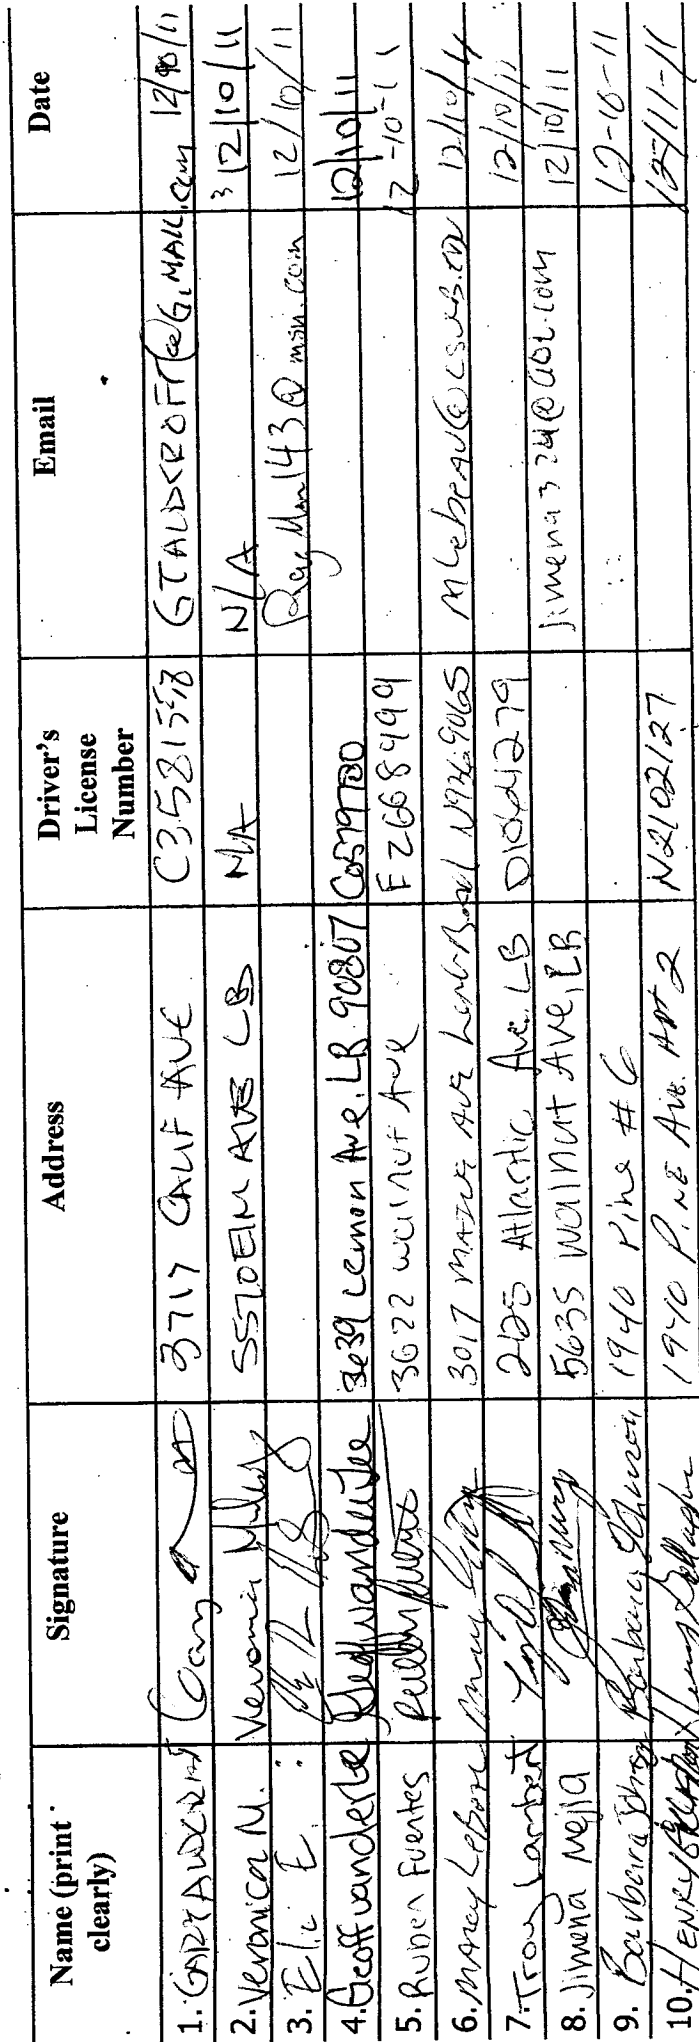 Name (print clearly) Signature Address Driver's License Number Email Date
1. GARY 3717 CALIF AVE C3581558 12/10/11
2. Veronica M. Veronica 5570 ELM AVE LB N/A N/A 12/10/11
3. Eli E. RayMan143@msn.com 12/10/11
4. Geoff vanderle 3639 Lemon Ave. LB 90807 12/10/11
5. Ruben Fuentes 3622 walnut Ave F2668499 12-10-11
6. Marcy 3017 MAINE AVE Long Beach 12/10/11
7. Troy Lambert Atlantic Ave. LB 12/10/11
8. Jimena Mejia 5635 Walnut Ave, LB Jimena324@aol.com 12/10/11
9. Barbara Johnson Barbara Johnson 1940 Pine # 6 12-10-11
10. HENRY 1940 PINE Ave. Apt 2 N2102127 12-11-11